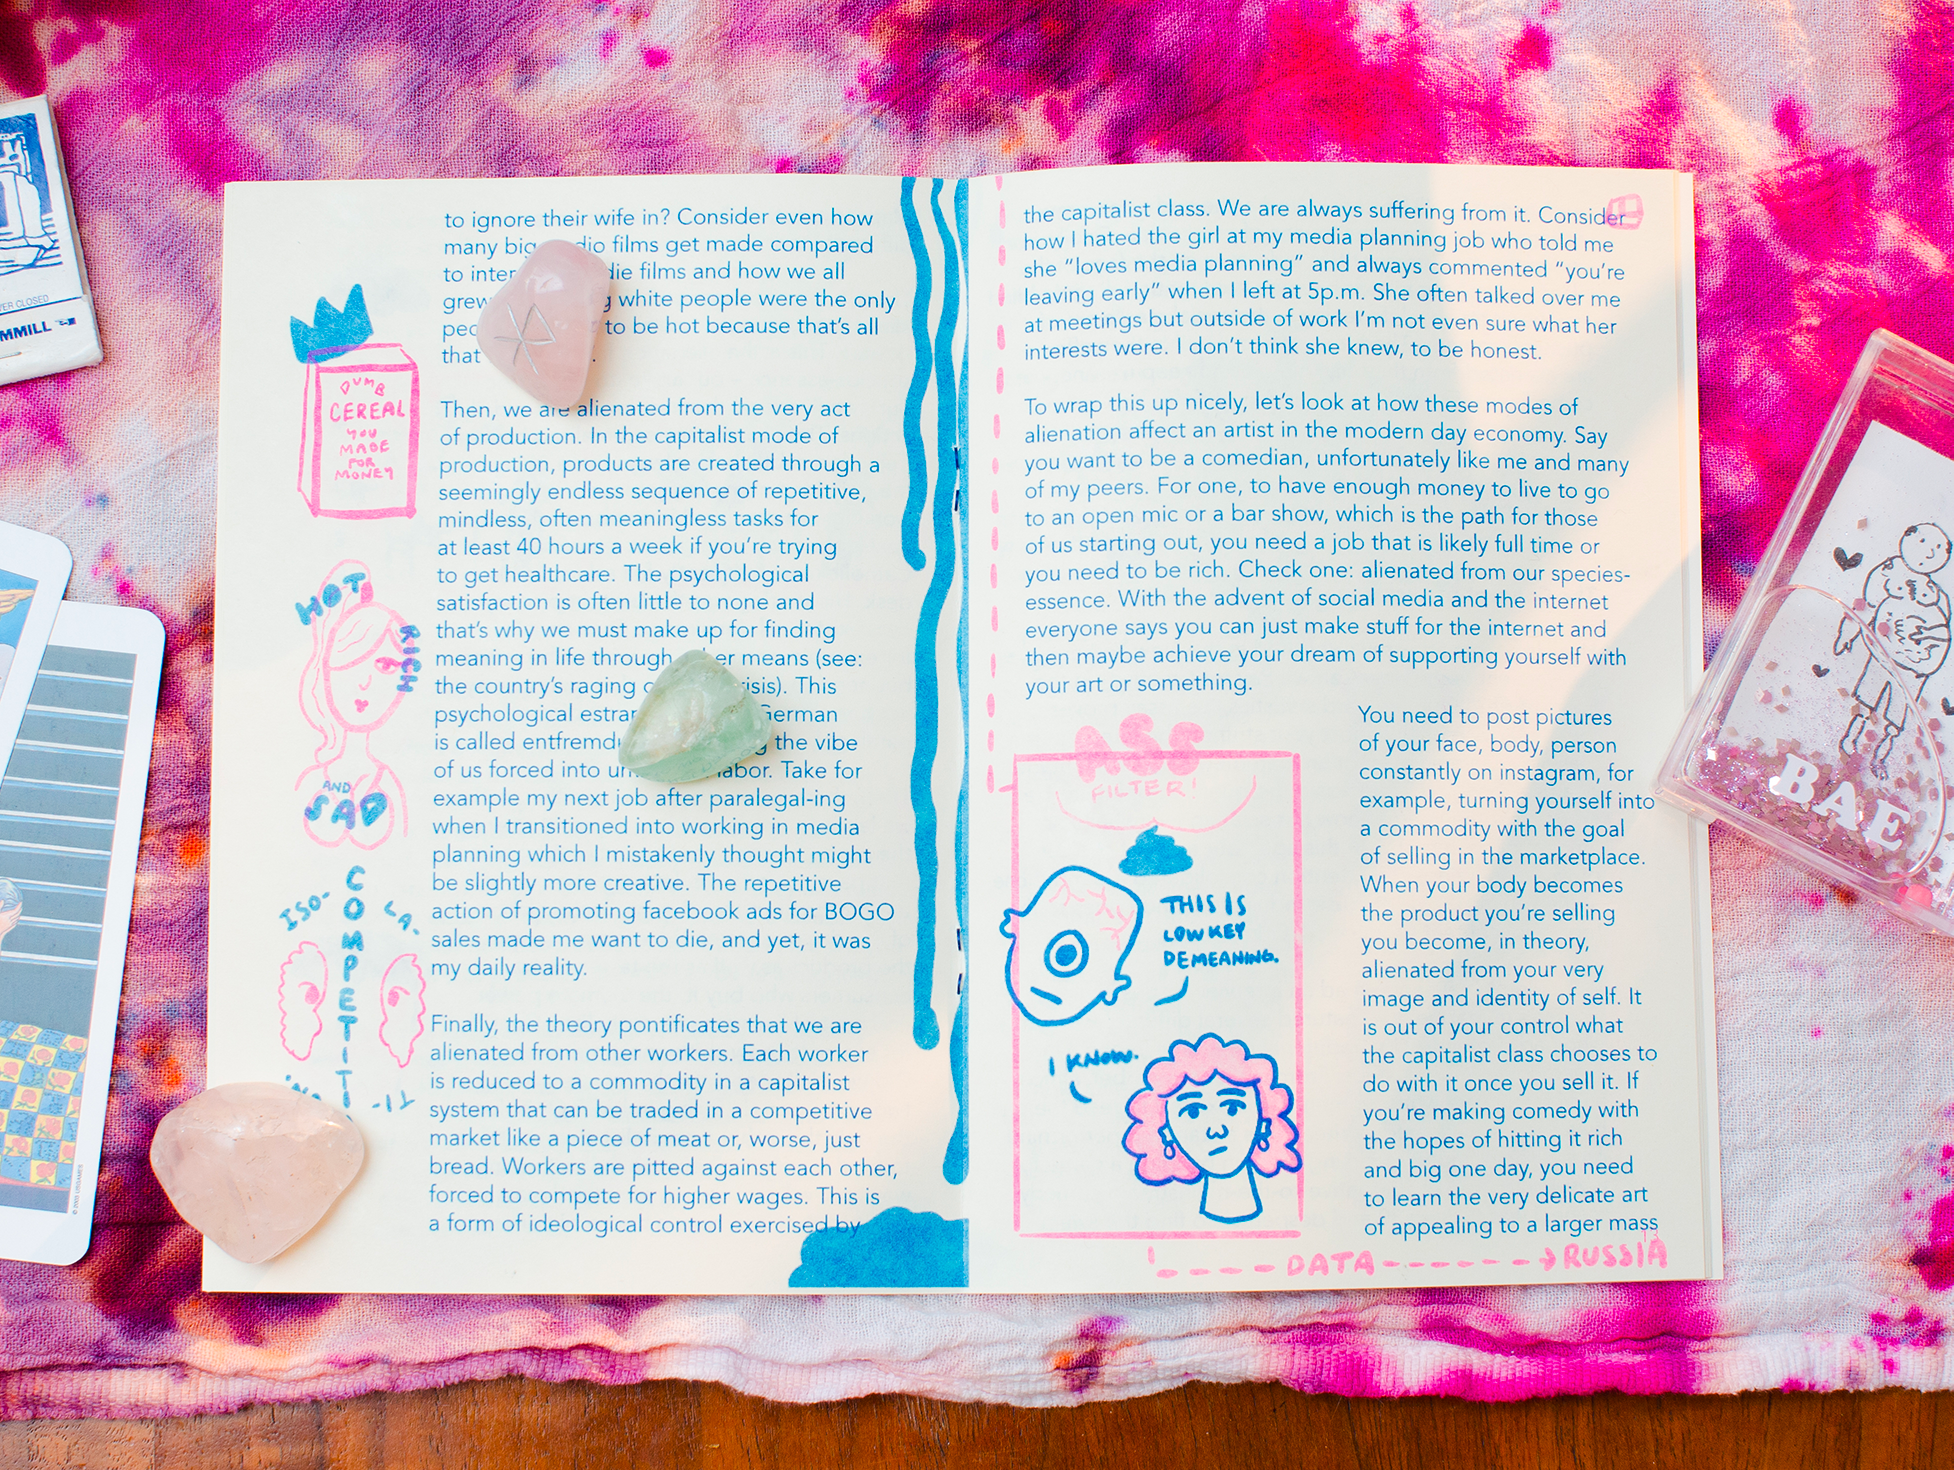 VER CLOSED
MMILL
© 2005 USGAMES
to ignore their wife in? Consider even how
many big dio films get made compared
to inter die films and how we all
grew g white people were the only
to be hot because that's all
that .
Then, we are alienated from the very act
of production. In the capitalist mode of
production, products are created through a
seemingly endless sequence of repetitive,
mindless, often meaningless tasks for
at least 40 hours a week if you're trying
to get healthcare. The psychological
satisfaction is often little to none and
that's why we must make up for finding
meaning in life through er means (see:
the country's raging isis). This
psychological German
is called the vibe
of us forced into labor. Take for
example my next job after paralegal-ing
when I transitioned into working in media
planning which I mistakenly thought might
be slightly more creative. The repetitive
action of promoting facebook ads for BOGO
sales made me want to die, and yet, it was
my daily reality.
Finally, the theory pontificates that we are
alienated from other workers. Each worker
is reduced to a commodity in a capitalist
system that can be traded in a competitive
market like a piece of meat or, worse, just
bread. Workers are pitted against each other,
forced to compete for higher wages. This is
a form of ideological control exercised by
DUMB
CEREAL
YOU
MADE
FOR
MONEY
HOT
RICH
AND
SAD
ISO-
LA-
COMPETITI
-TI-
the capitalist class. We are always suffering from it. Consider
how I hated the girl at my media planning job who told me
she “loves media planning” and always commented “you're
leaving early” when I left at 5p.m. She often talked over me
at meetings but outside of work I'm not even sure what her
interests were. I don't think she knew, to be honest.
To wrap this up nicely, let's look at how these modes of
alienation affect an artist in the modern day economy. Say
you want to be a comedian, unfortunately like me and many
of my peers. For one, to have enough money to live to go
to an open mic or a bar show, which is the path for those
of us starting out, you need a job that is likely full time or
you need to be rich. Check one: alienated from our species-
essence. With the advent of social media and the internet
everyone says you can just make stuff for the internet and
then maybe achieve your dream of supporting yourself with
your art or something.
You need to post pictures
of your face, body, person
constantly on instagram, for
example, turning yourself into
a commodity with the goal
of selling in the marketplace.
When your body becomes
the product you're selling
you become, in theory,
alienated from your very
image and identity of self. It
is out of your control what
the capitalist class chooses to
do with it once you sell it. If
you're making comedy with
the hopes of hitting it rich
and big one day, you need
to learn the very delicate art
of appealing to a larger mass
ASS
FILTER!
THIS IS
LOWKEY
DEMEANING.
I KNOW.
DATA
RUSSIA
BAE